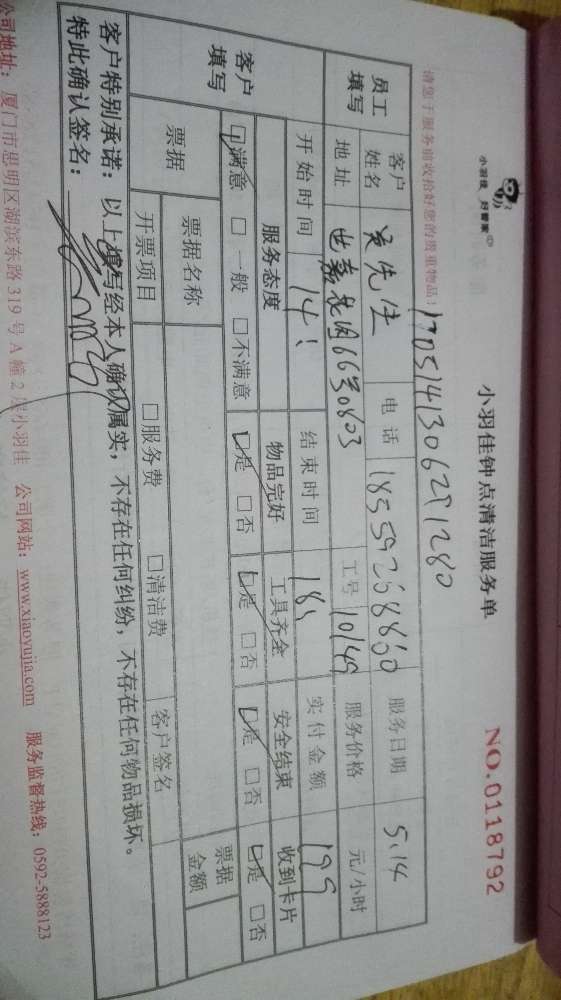 小羽佳 好管家
小羽佳钟点清洁服务单 NO.0118792
请您于服务前收拾好您的贵重物品!
员工填写 客户姓名 黄先生 电话 18559268860 服务日期 5.14
地址 世嘉花园6630803 工号 10149 服务价格 元/小时
开始时间 14: 结束时间 18: 实付金额 199
客户填写 服务态度 物品完好 工具齐全 安全结束 收到卡片
满意 □一般 □不满意 是 □否 是 □否 是 □否 是 □否
票据 票据名称 票据金额
开票项目 □服务费 □清洁费 客户签名
客户特别承诺：以上填写经本人确认属实，不存在任何纠纷，不存在任何物品损坏。
特此确认签名：
公司地址：厦门市思明区湖滨东路319号A幢2层小羽佳 公司网站：www.xiaoyujia.com 服务监督热线：0592-5888123